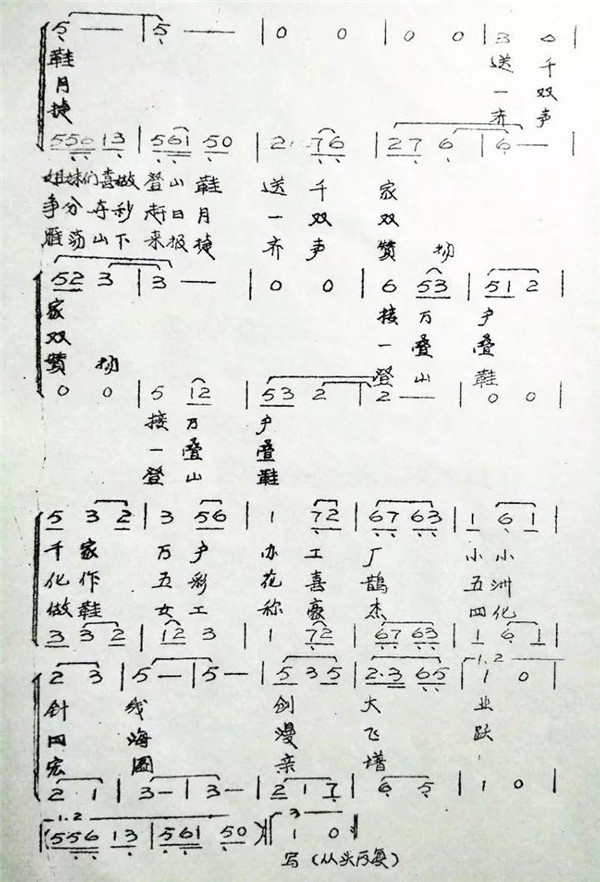 5 — — | 5 — — | 0 0 | 0 0 | 3 0 |
鞋 送 千
月 一 双
捷 齐 声
556 13 | 561 50 | 2 76 | 27 6 | 6 — |
姐妹们喜做 登山 鞋 送 千 家
争分夺秒 赶日 月 一 双 双
雁荡山下 来报 捷 齐 声 赞 扬
52 3 | 3 — | 0 0 | 6 53 | 51 2 |
家 接 万 户
双 一 叠 叠
赞 扬 登 山 鞋
0 0 | 5 12 | 53 2 | 2 — | 0 0 |
接 万 户
一 叠 叠
登 山 鞋
5 3 2 | 3 56 | 1 72 | 67 63 | 1 6 1 |
千 家 万 户 办 工 厂 小 小
化 作 五 彩 花 喜 鹊 五 洲
做 鞋 女 工 称 豪 杰 四 化
3 3 2 | 12 3 | 1 72 | 67 63 | 1 6 1 |
2 3 | 5 — | 5 — | 5 3 5 | 2·3 65 | 1.2 1 0 |
针 线 创 大 业
四 海 漫 飞 跃
宏 图 亲 增
2 1 | 3 — | 3 — | 2 1 7 | 6 5 | 1 0 |
1.2 556 13 | 561 50 | 3 1 0
写 (从头反复)